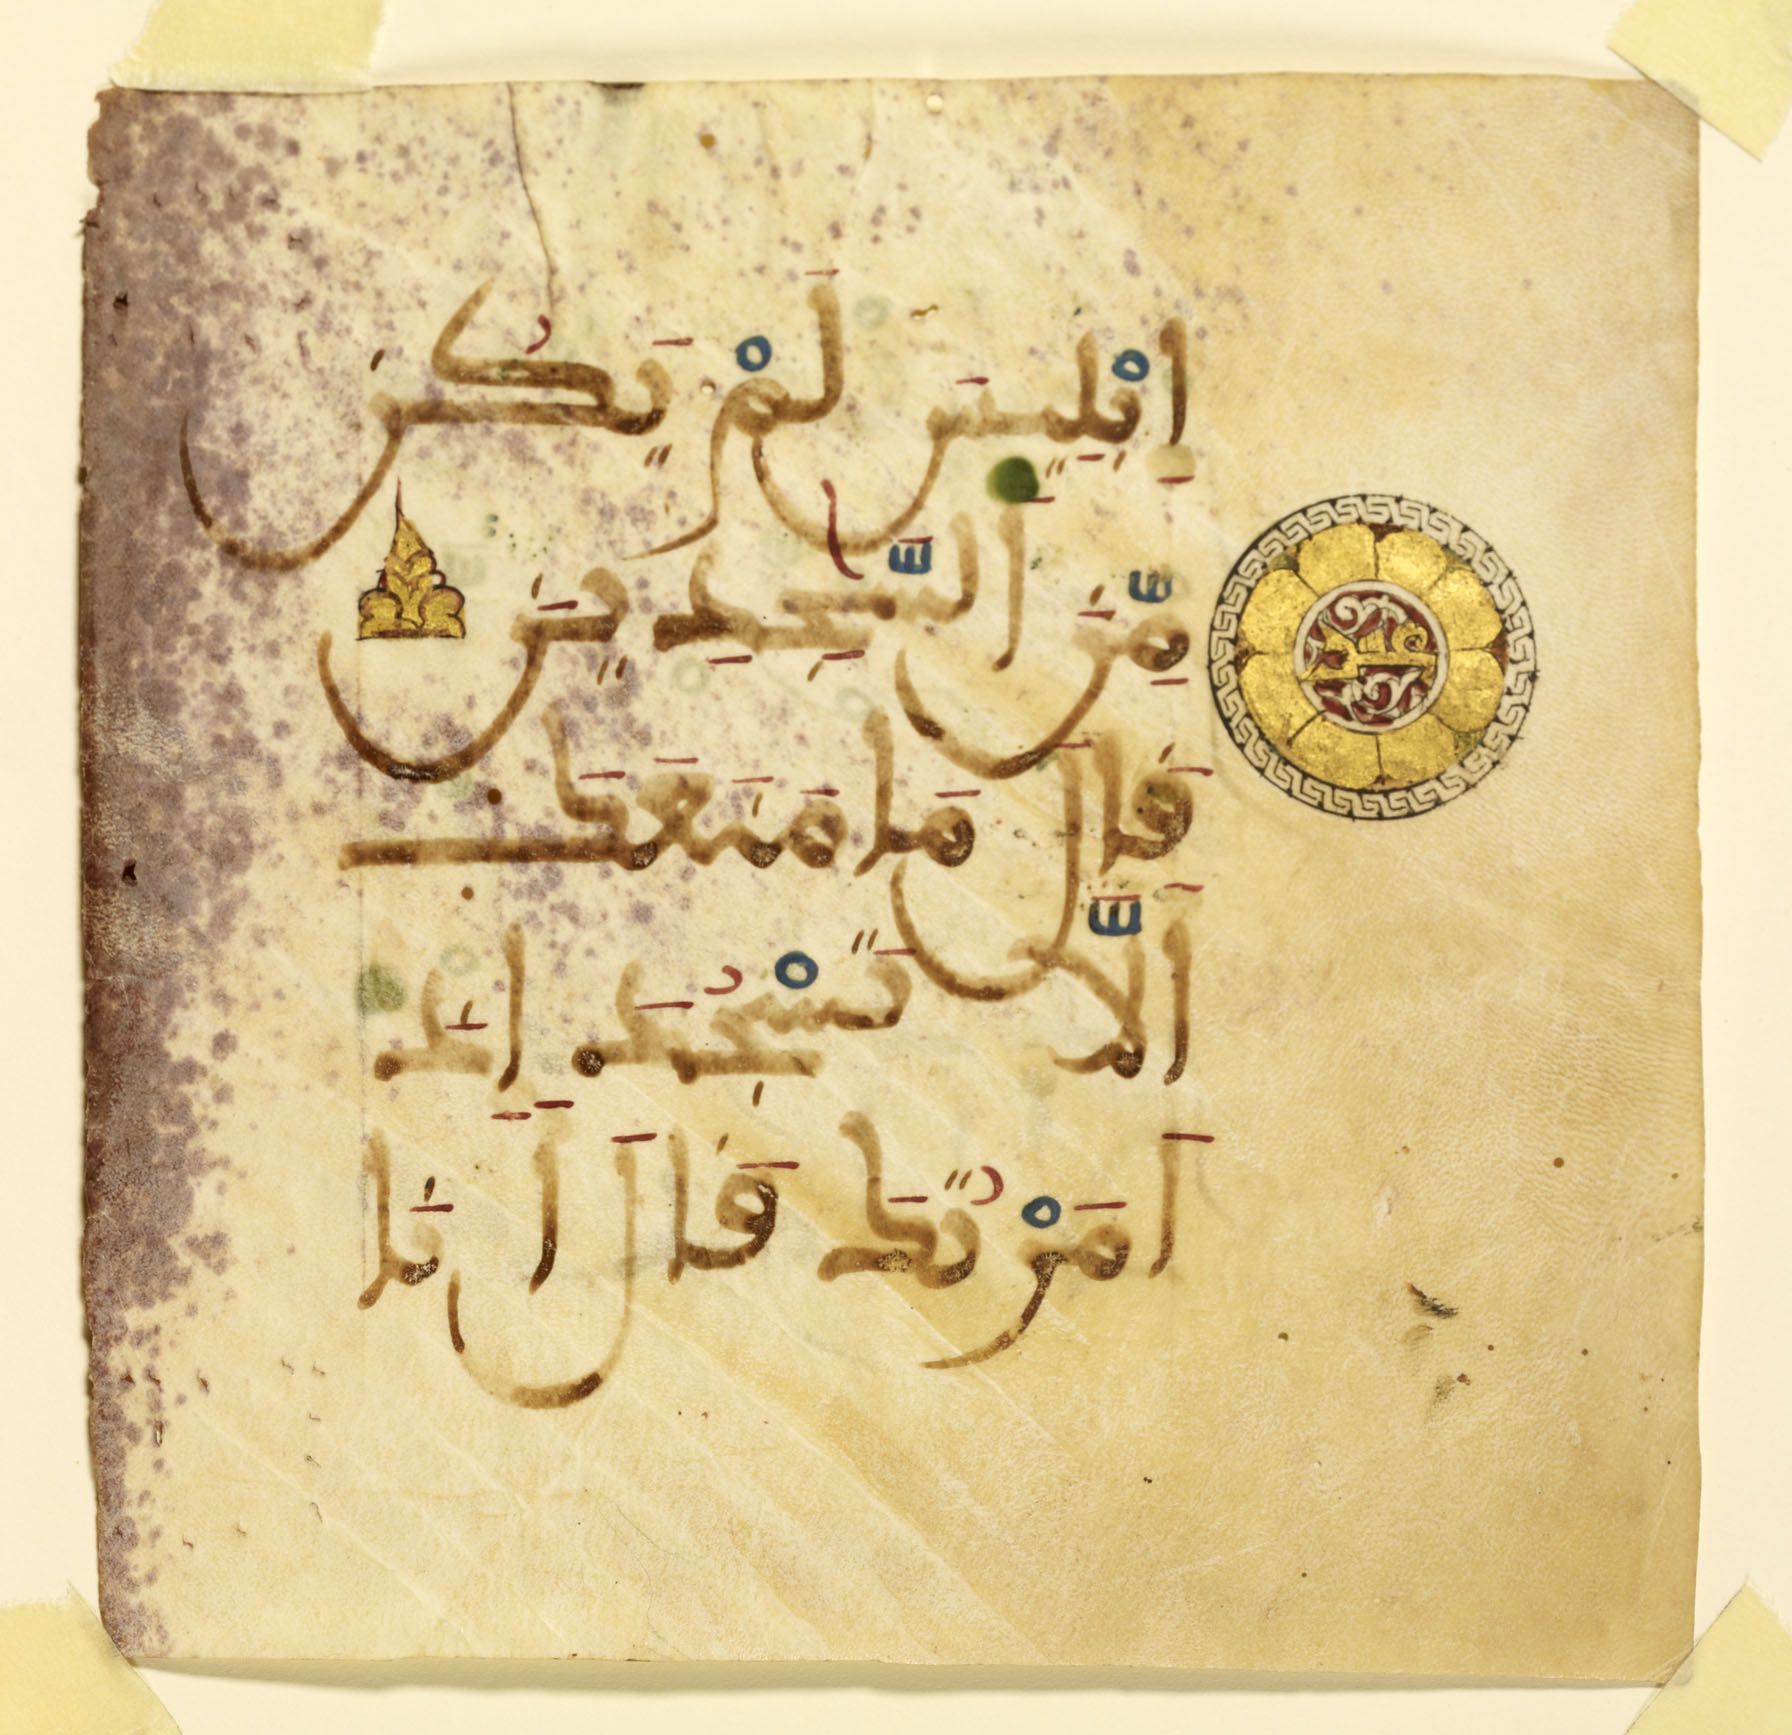 إِبْلِيسَ لَمْ يَكُن
مِّنَ ٱلسَّٰجِدِينَ
عشر
قَالَ مَا مَنَعَكَ
أَلَّا تَسْجُدَ إِذَ
اَمَرْتُكَ قَالَ أَنَا